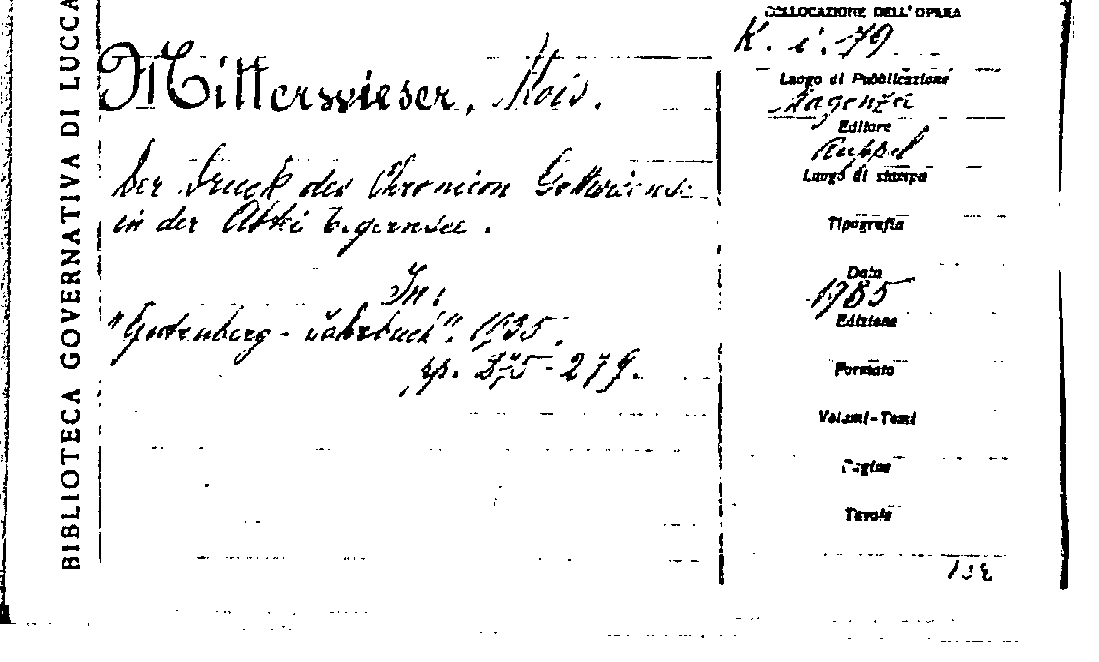 BIBLIOTECA GOVERNATIVA DI LUCCA
Mitterwieser, Alois.
Der Druck des Chronicon Gottwicense
in der Abtei Tegernsee.
In:
"Gutenberg-Jahrbuch". 1935.
pp. 275-279.
COLLOCAZIONE DELL'OPERA
K. i. 79
Luogo di Pubblicazione
Magenza
Editore
Ruppel
Luogo di stampa
Tipografia
Data
1935
Edizione
Formato
Volumi-Tomi
Pagine
Tavole